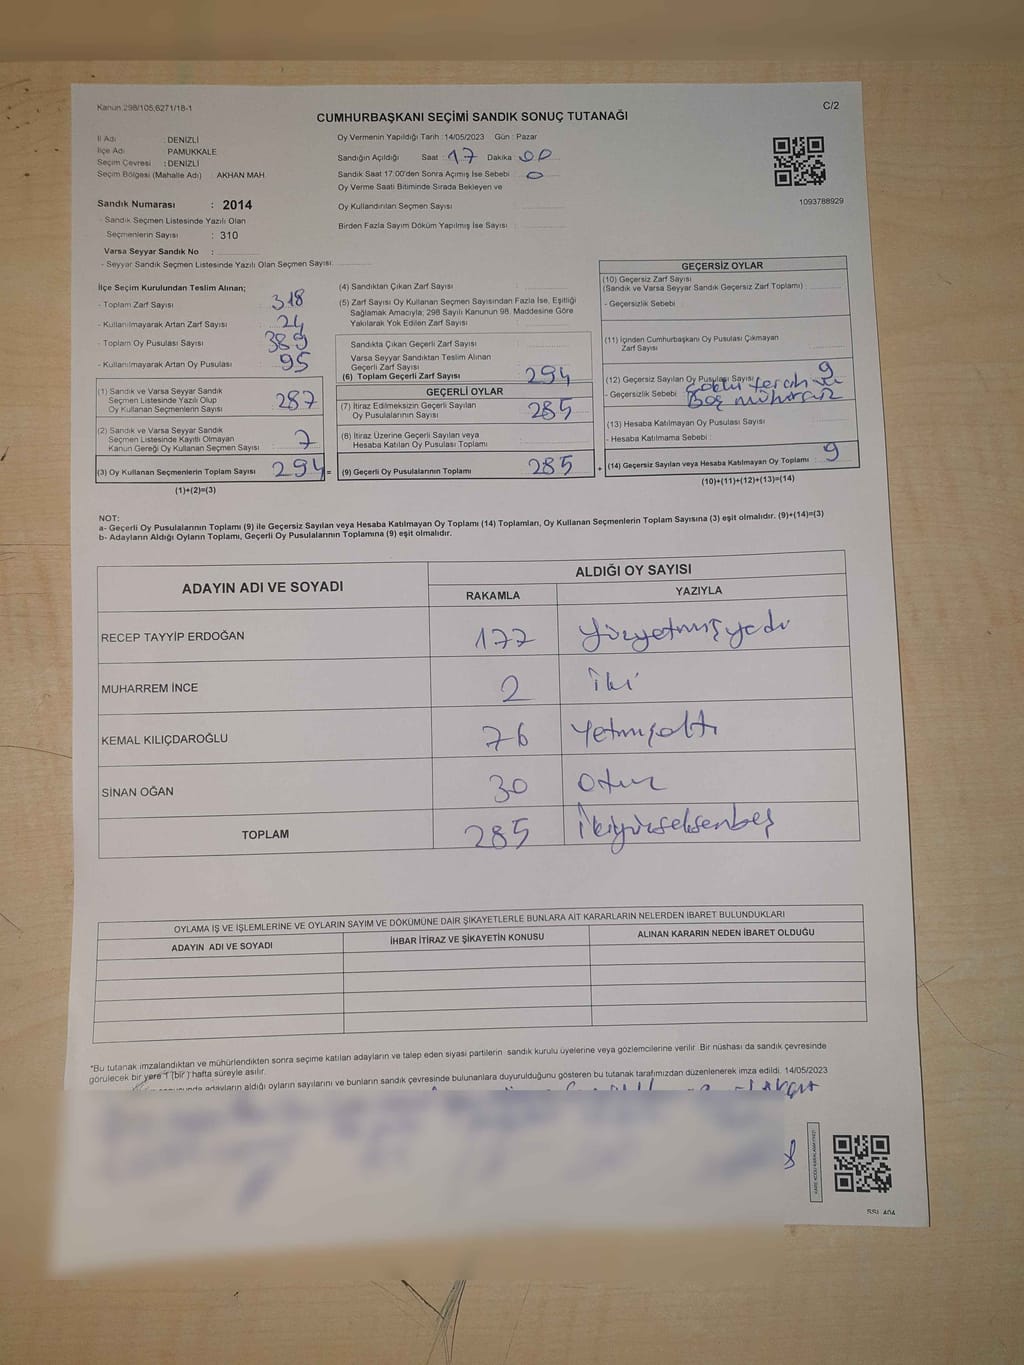 Kanun 298/105,6271/18-1
C/2
CUMHURBAŞKANI SEÇİMİ SANDIK SONUÇ TUTANAĞI
İl Adı : DENİZLİ
İlçe Adı : PAMUKKALE
Seçim Çevresi : DENİZLİ
Seçim Bölgesi (Mahalle Adı) : AKHAN MAH.
Oy Vermenin Yapıldığı Tarih : 14/05/2023 Gün : Pazar
Sandığın Açıldığı Saat : 17 Dakika : 00
Sandık Saat 17:00'den Sonra Açımış İse Sebebi : 0
Oy Verme Saati Bitiminde Sırada Bekleyen ve
Oy Kullandırılan Seçmen Sayısı :
Birden Fazla Sayım Döküm Yapılmış İse Sayısı :
1093788929
Sandık Numarası : 2014
- Sandık Seçmen Listesinde Yazılı Olan
Seçmenlerin Sayısı : 310
Varsa Seyyar Sandık No :
- Seyyar Sandık Seçmen Listesinde Yazılı Olan Seçmen Sayısı:
İlçe Seçim Kurulundan Teslim Alınan;
- Toplam Zarf Sayısı : 318
- Kullanılmayarak Artan Zarf Sayısı : 24
- Toplam Oy Pusulası Sayısı : 389
- Kullanılmayarak Artan Oy Pusulası : 95
(1) Sandık ve Varsa Seyyar Sandık
Seçmen Listesinde Yazılı Olup
Oy Kullanan Seçmenlerin Sayısı : 287
(2) Sandık ve Varsa Seyyar Sandık
Seçmen Listesinde Kayıtlı Olmayan
Kanun Gereği Oy Kullanan Seçmen Sayısı : 7
(3) Oy Kullanan Seçmenlerin Toplam Sayısı : 294 =
(1)+(2)=(3)
(4) Sandıktan Çıkan Zarf Sayısı :
(5) Zarf Sayısı Oy Kullanan Seçmen Sayısından Fazla İse, Eşitliği
Sağlamak Amacıyla; 298 Sayılı Kanunun 98. Maddesine Göre
Yakılarak Yok Edilen Zarf Sayısı :
Sandıkta Çıkan Geçerli Zarf Sayısı :
Varsa Seyyar Sandıktan Teslim Alınan
Geçerli Zarf Sayısı :
(6) Toplam Geçerli Zarf Sayısı : 294
GEÇERLİ OYLAR
(7) İtiraz Edilmeksizin Geçerli Sayılan
Oy Pusulalarının Sayısı : 285
(8) İtiraz Üzerine Geçerli Sayılan veya
Hesaba Katılan Oy Pusulası Toplamı :
(9) Geçerli Oy Pusulalarının Toplamı : 285 +
GEÇERSİZ OYLAR
(10) Geçersiz Zarf Sayısı
(Sandık ve Varsa Seyyar Sandık Geçersiz Zarf Toplamı) :
- Geçersizlik Sebebi :
(11) İçinden Cumhurbaşkanı Oy Pusulası Çıkmayan
Zarf Sayısı :
(12) Geçersiz Sayılan Oy Pusulası Sayısı : 9
- Geçersizlik Sebebi : Çoklu tercih ve
Boş mühürsüz
(13) Hesaba Katılmayan Oy Pusulası Sayısı :
- Hesaba Katılmama Sebebi :
(14) Geçersiz Sayılan veya Hesaba Katılmayan Oy Toplamı : 9
(10)+(11)+(12)+(13)=(14)
NOT:
a- Geçerli Oy Pusulalarının Toplamı (9) ile Geçersiz Sayılan veya Hesaba Katılmayan Oy Toplamı (14) Toplamları, Oy Kullanan Seçmenlerin Toplam Sayısına (3) eşit olmalıdır. (9)+(14)=(3)
b- Adayların Aldığı Oyların Toplamı, Geçerli Oy Pusulalarının Toplamına (9) eşit olmalıdır.
ADAYIN ADI VE SOYADI ALDIĞI OY SAYISI
RAKAMLA YAZIYLA
RECEP TAYYİP ERDOĞAN 177 Yüzyetmişyedi
MUHARREM İNCE 2 iki
KEMAL KILIÇDAROĞLU 76 Yetmişaltı
SİNAN OĞAN 30 Otuz
TOPLAM 285 İkiyüzseksenbeş
OYLAMA İŞ VE İŞLEMLERİNE VE OYLARIN SAYIM VE DÖKÜMÜNE DAİR ŞİKAYETLERLE BUNLARA AİT KARARLARIN NELERDEN İBARET BULUNDUKLARI
ADAYIN ADI VE SOYADI İHBAR İTİRAZ VE ŞİKAYETİN KONUSU ALINAN KARARIN NEDEN İBARET OLDUĞU
*Bu tutanak imzalandıktan ve mühürlendikten sonra seçime katılan adayların ve talep eden siyasi partilerin sandık kurulu üyelerine veya gözlemcilerine verilir. Bir nüshası da sandık çevresinde
görülecek bir yere 1 (bir) hafta süreyle asılır.
adayların aldığı oyların sayılarını ve bunların sandık çevresinde bulunanlara duyurulduğunu gösteren bu tutanak tarafımızdan düzenlenerek imza edildi. 14/05/2023